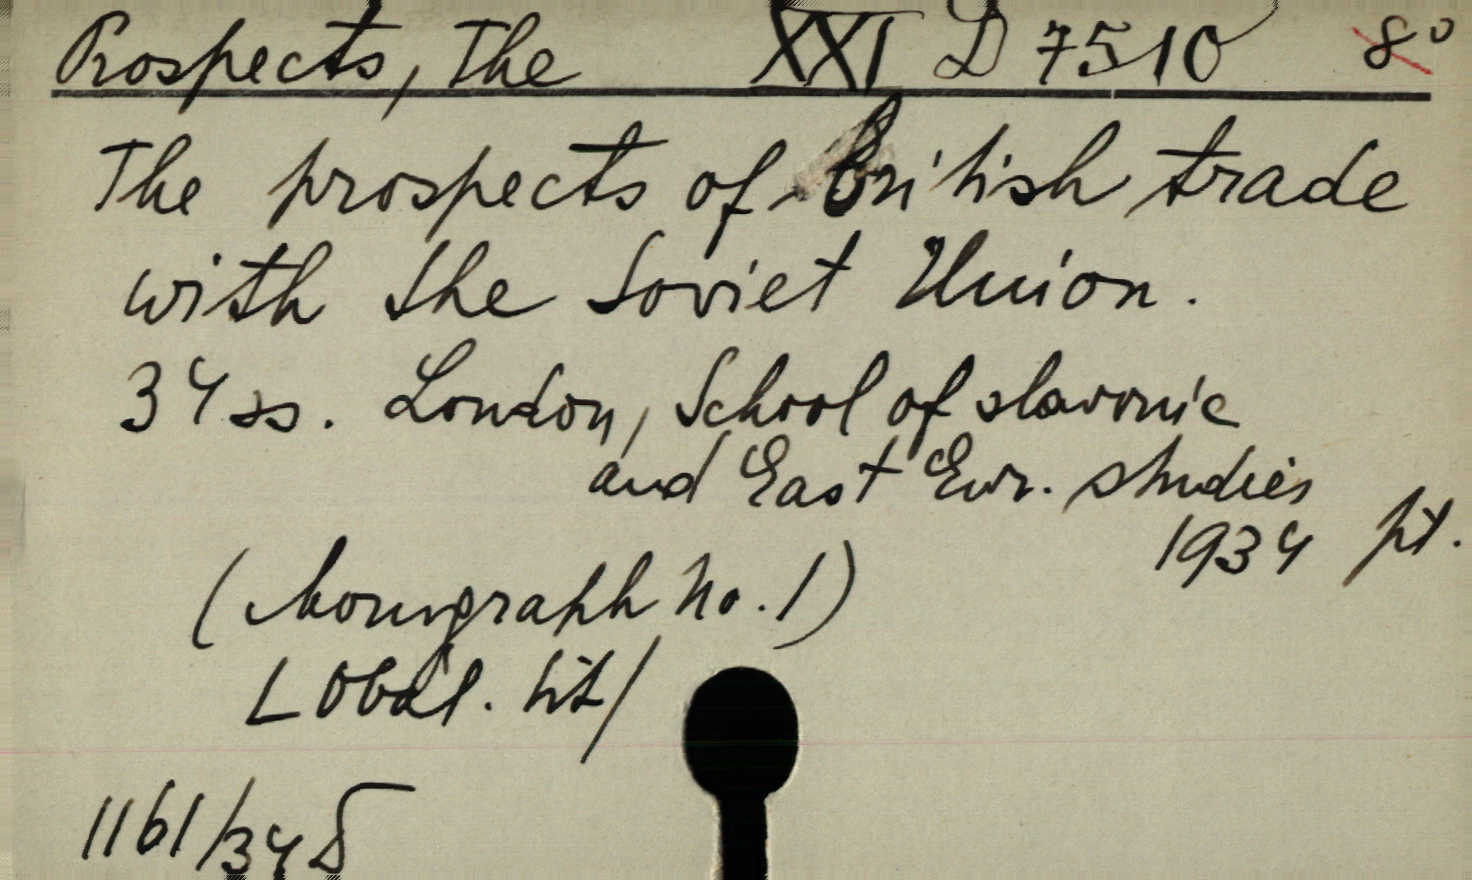 Prospects, The XXI D 7510 8°
The prospects of british trade
with the Soviet Union.
34 ss. London, School of slavonic
and East Eur. studies
1934 pt.
(Monograph No. 1)
[Obál. tit/
1161/34 δ